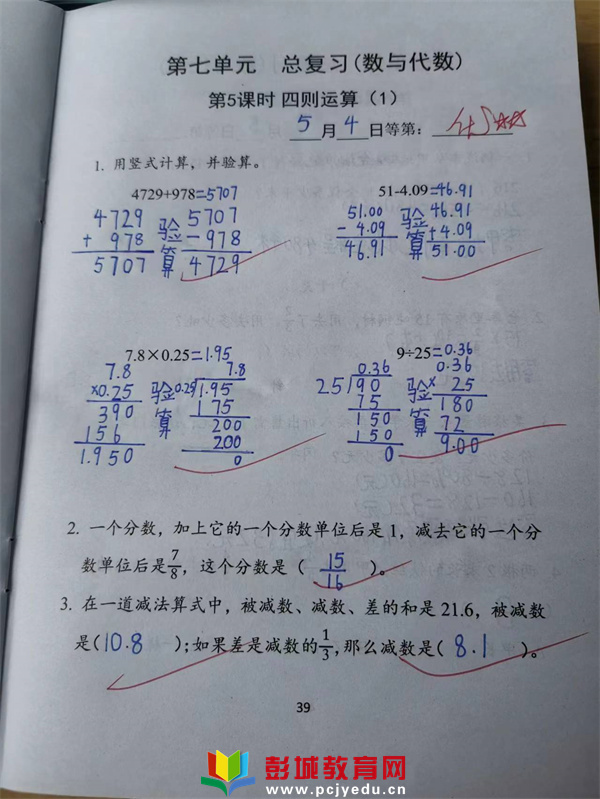 第七单元 总复习(数与代数)
第5课时 四则运算（1）
5月4日等第：
1. 用竖式计算，并验算。
4729+978=5707 51-4.09=46.91
4729 验算 5707 51.00 验算 46.91
+ 978 - 978 - 4.09 + 4.09
5707 4729 46.91 51.00
7.8×0.25=1.95 9÷25=0.36
7.8 验算 7.8 0.36 验算 0.36
×0.25 0.25 1.95 25 90 × 25
390 175 75 180
156 200 150 72
1.950 200 150 9.00
0 0
2. 一个分数，加上它的一个分数单位后是1，减去它的一个分
数单位后是7/8，这个分数是（ 15/16 ）。
3. 在一道减法算式中，被减数、减数、差的和是21.6，被减数
是(10.8);如果差是减数的1/3,那么减数是( 8.1 )。
39
彭城教育网
www.pcjyedu.cn